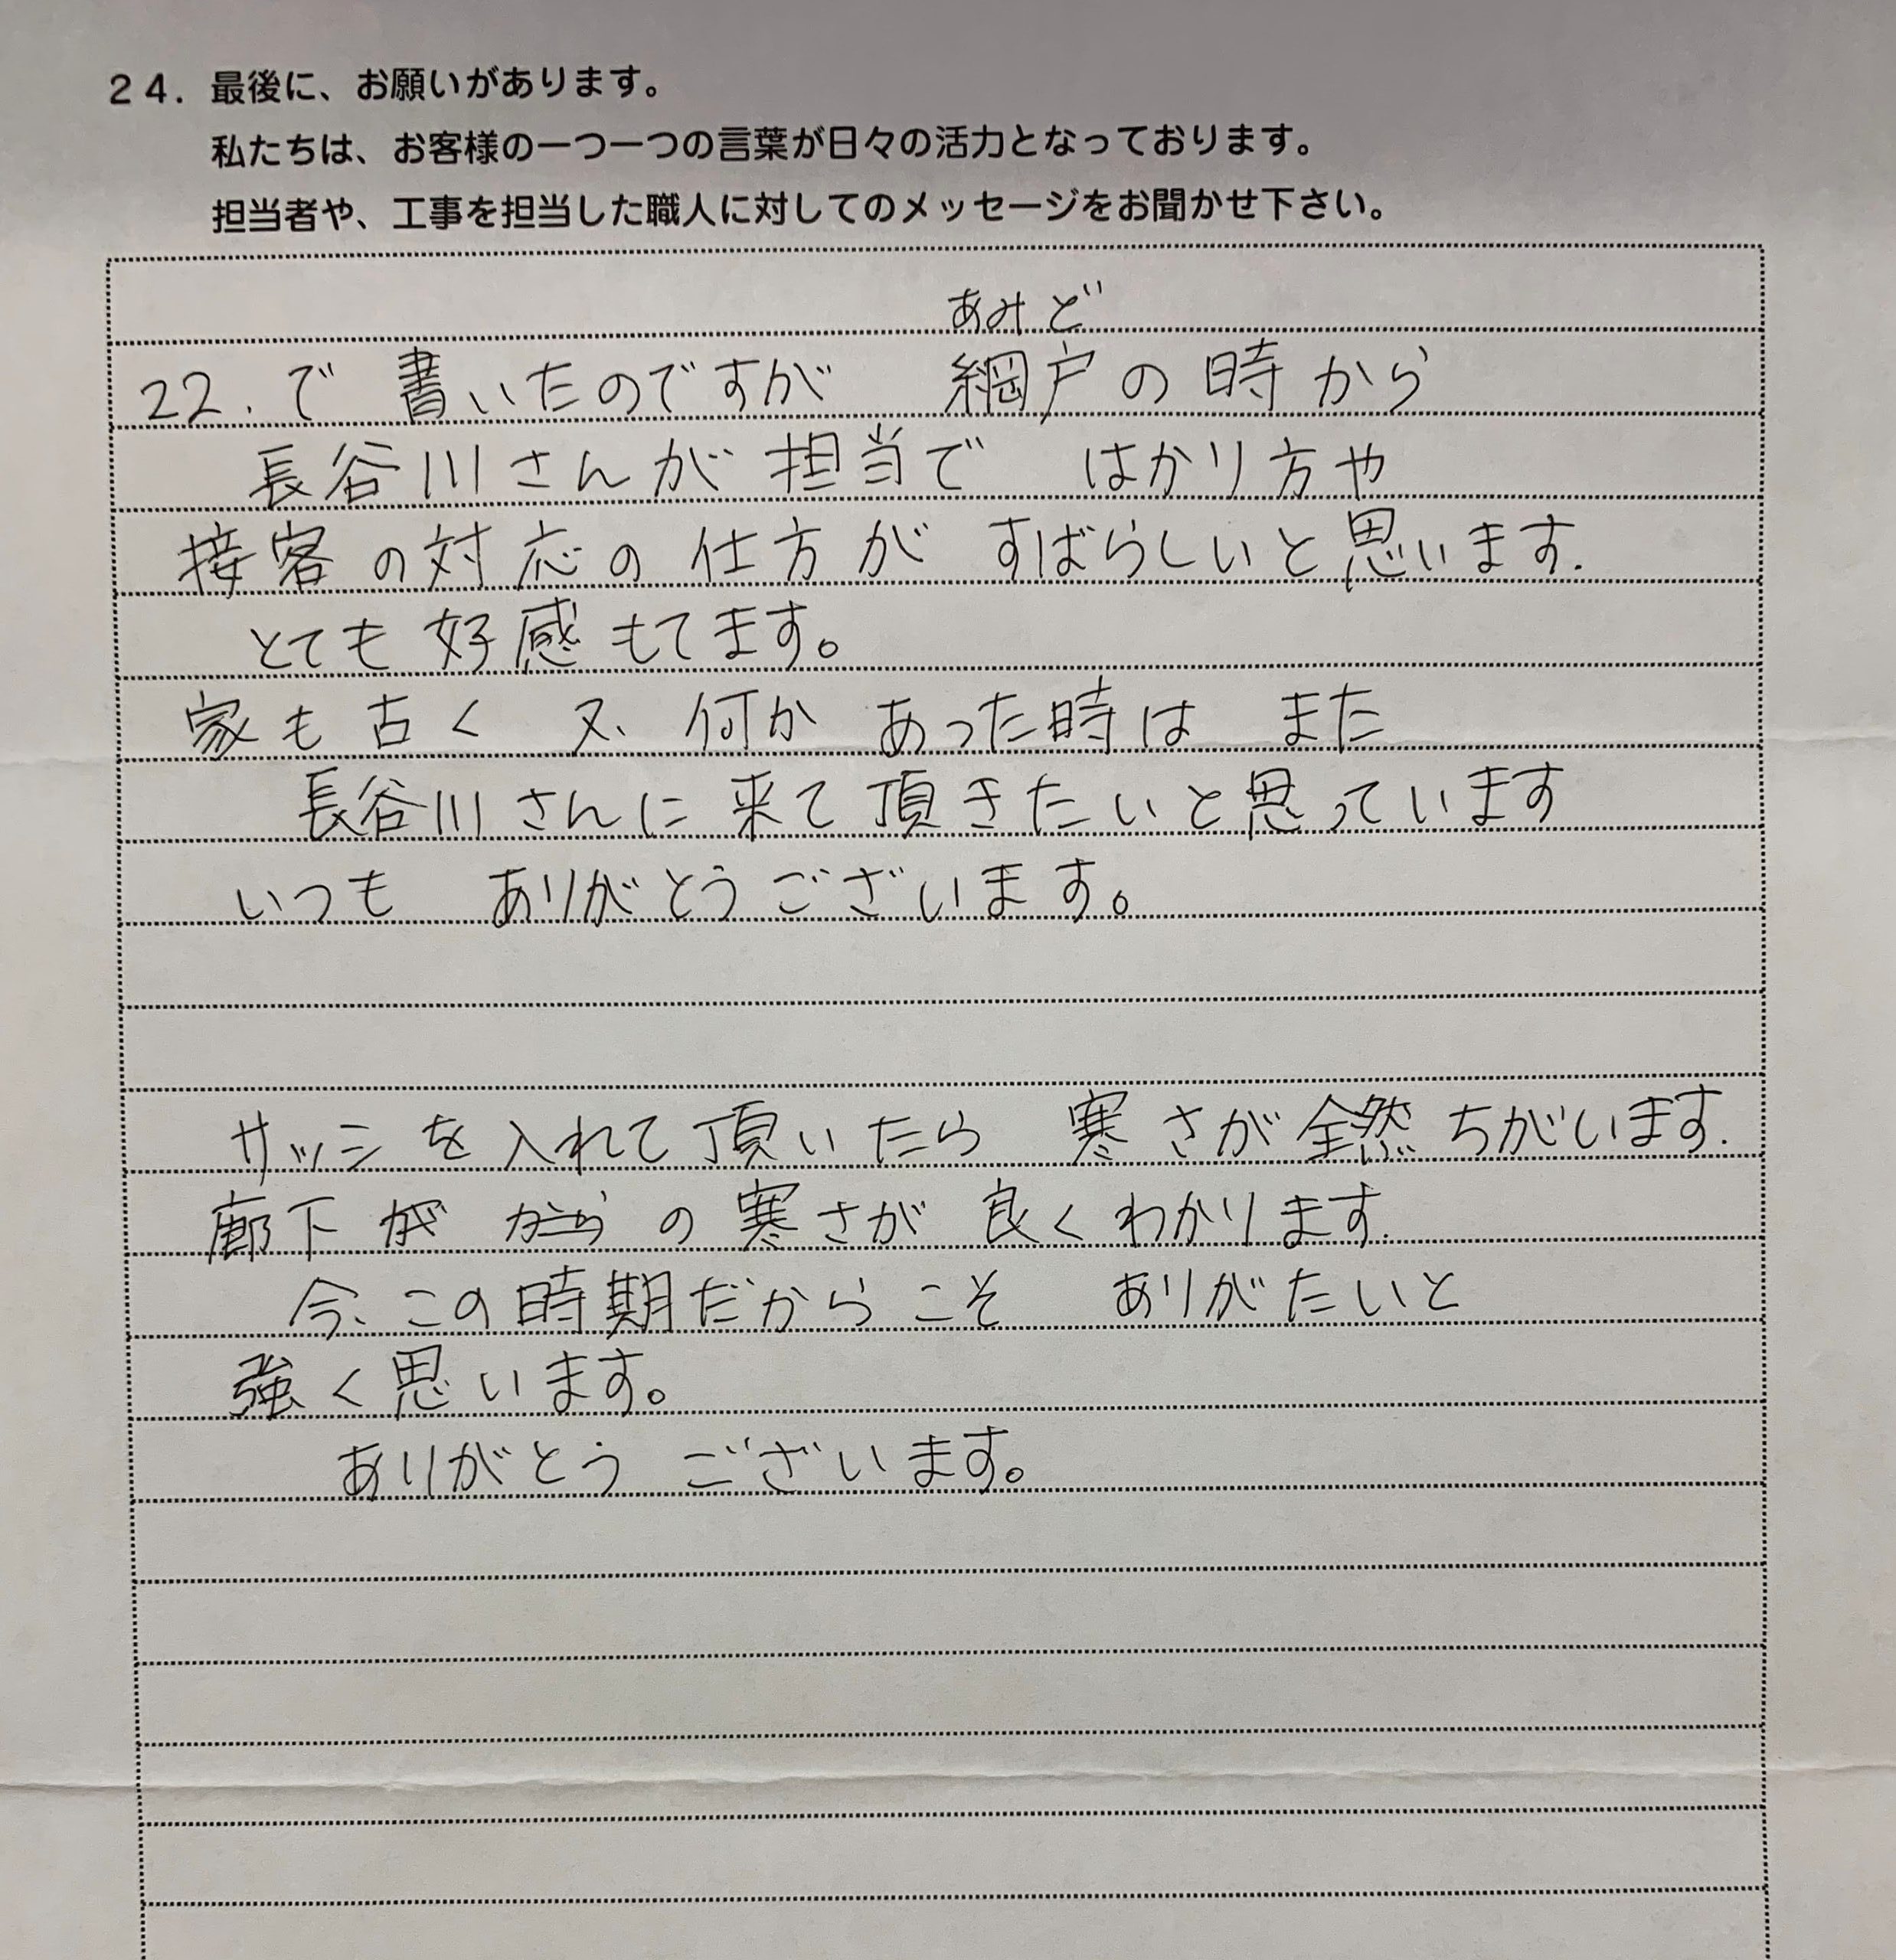 24. 最後に、お願いがあります。
私たちは、お客様の一つ一つの言葉が日々の活力となっております。
担当者や、工事を担当した職人に対してのメッセージをお聞かせ下さい。
あみど
22.で 書いたのですが 網戸の時から
長谷川さんが担当で はかり方や
接客の対応の仕方が すばらしいと思います.
とても好感もてます。
家も古く 又、何か あった時は また
長谷川さんに来て頂きたいと思っています
いつも ありがとうございます。
サッシを入れて頂いたら 寒さが全然ちがいます.
廊下がからの寒さが良くわかります.
今、この時期だからこそ ありがたいと
強く思います。
ありがとうございます。